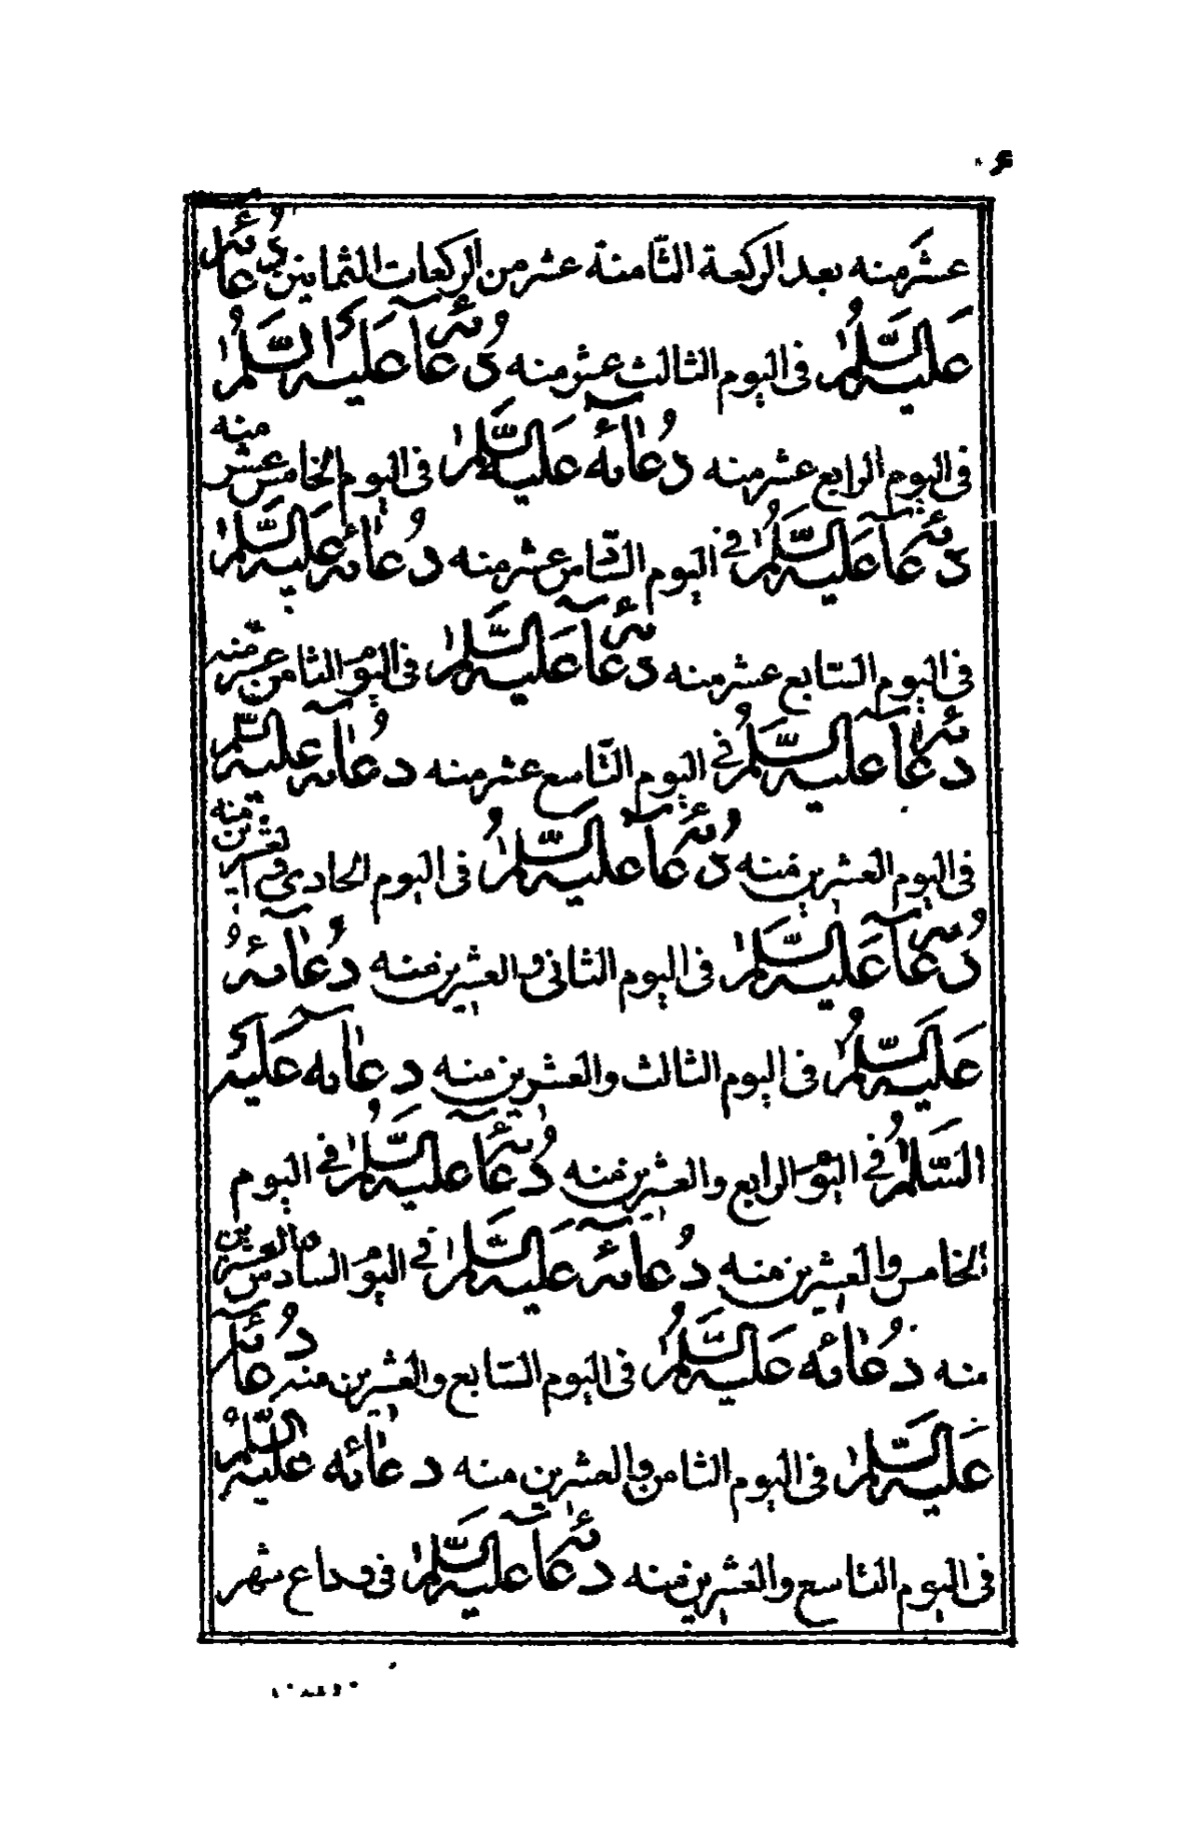 عشر منه بعد الركعة الثّامنة عشر من الركعات الثمانين دُعائه
عَليه السَّلٰمُ فى اليوم الثالث عشر منه دُعائهُ عَليهِ السَّلٰمُ
فى اليوم الرابع عشر منه دُعائه عَليه السَّلٰمُ فى اليوم الخامس عشر منه
دعَائه عَليه السَّلٰمُ فى اليوم السّادس عشر منه دعائهُ عَليه السَّلٰمُ
فى اليوم السّابع عشر منه دعَائه عَليه السَّلٰمُ فى اليوم الثامن عشر منه
دعَائه عَليه السَّلٰمُ فى اليوم التّاسع عشر منه دعائهُ عليه السّلٰم
فى اليوم العشرين منه دُعائهُ عَليه السَّلٰمُ فى اليوم الحادى والعشرين منه
دُعائهُ عَليه السَّلٰمُ فى اليوم الثانى والعشرين منه دُعائهُ
عَليه السَّلٰمُ فى اليوم الثالث والعشرين منه دعائه عَليهِ
السَّلٰمُ فى اليوم الرابع والعشرين منه دُعائهُ عَليه السَّلٰمُ فى اليوم
الخامس والعشرين منه دُعائه عَليه السَّلٰمُ فى اليوم السادس والعشرين
منه دُعائه عَليه السَّلٰمُ فى اليوم السّابع والعشرين منه دُعائه
عَليه السَّلٰمُ فى اليوم الثامن والعشرين منه دعائه عليه السّلٰمُ
فى اليوم التاسع والعشرين منه دعَائه عَليه السَّلٰمُ فى وداع شهر